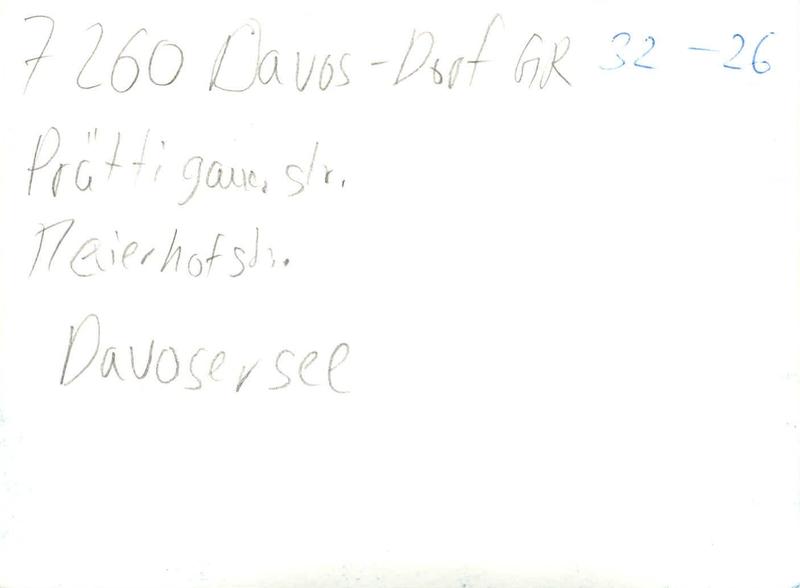 7260 Davos-Dorf GR 32-26
Prättigauerstr.
Meierhofstr.
Davosersee